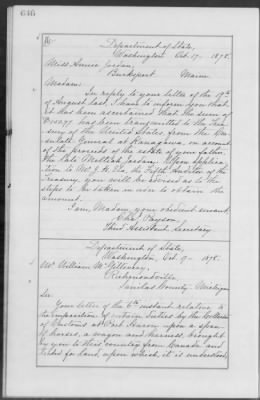 646
Department of State,
Washington Oct. 17 - 1878.
Miss Annie Jordan,
Bucksport Maine
Madam:
In reply to your letter of the 19th
of August last, I have to inform you that
it has been ascertained that the sum of
has been transmitted to the Trea-
sury of the United States, from the Con-
sulate General at Kanagawa, on account
of the proceeds of the estate of your father,
the late Jordan. Upon applica-
tion to the Fifth Auditor of the
Treasury, you will be advised as to the
steps to be taken in order to obtain the
amount.
I am, Madam, your obedient servant,
Chas. Payson,
Third Assistant Secretary.
Department of State,
Washington, Oct. 9 - 1878.
Mr. William
Richmondville,
Sanilac County Michigan
Sir:
Your letter of the 6th instant relative to
the imposition of duties by the Collector
of Customs at Port Huron upon a span
of horses, a wagon and harness, brought
by you to this country from Canada and
for land, upon which, it is understood,